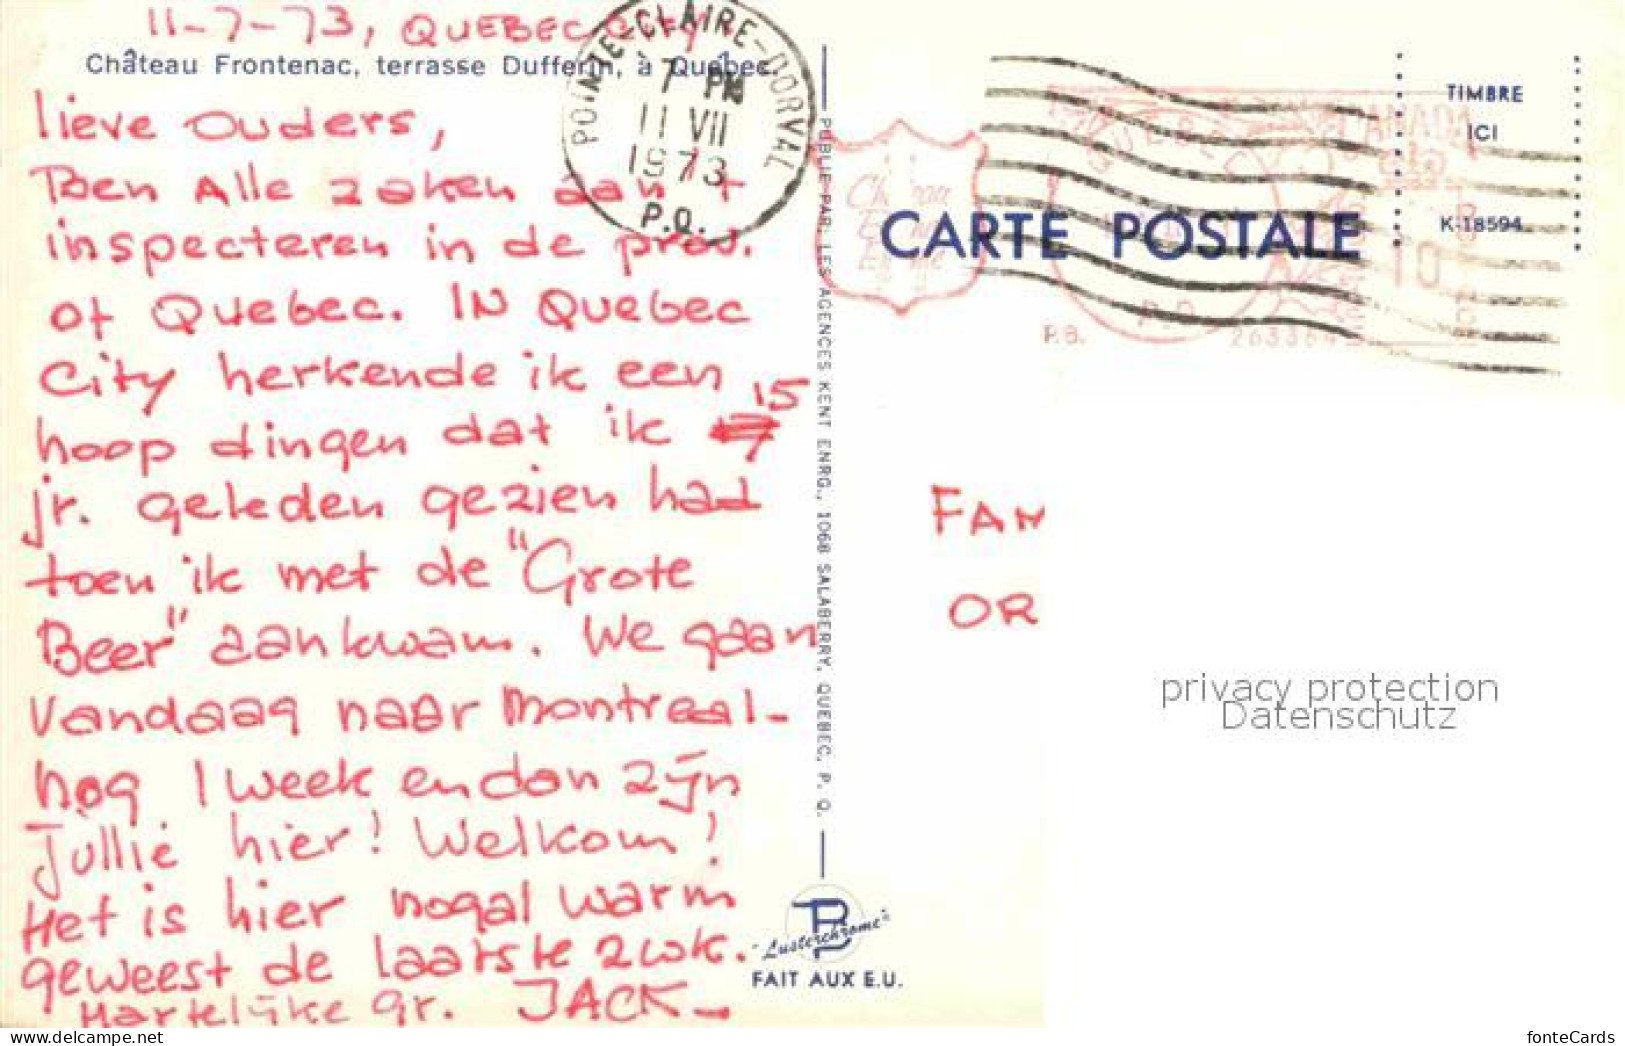 11-7-73, QUEBEC CITY
Château Frontenac, terrasse Dufferin, à Québec.
lieve Ouders,
Ben Alle zaken aan 't
inspecteren in de prov.
of Quebec. IN Quebec
City herkende ik een
hoop dingen dat ik 15
jr. geleden gezien had
toen ik met de "Grote
Beer" aankwam. We gaan
vandaag naar Montreal-
nog 1 week en dan zijn
Jullie hier! Welkom!
Het is hier nogal warm
geweest de laatste 2 wk.
Hartelijke gr. JACK-
POINTE-CLAIRE-DORVAL
7 PM
11 VII
1973
P.Q.
PUBLIE PAR LES AGENCES KENT ENRG., 1068 SALABERRY, QUEBEC, P. Q.
CARTE POSTALE
TIMBRE
ICI
K-18594
CANADA
QUEBEC
P.Q.
10
P.B.
263364
FAM
OR
privacy protection
Datenschutz
"Lusterchrome"
FAIT AUX E.U.
my.delcampe.net
fonteCards